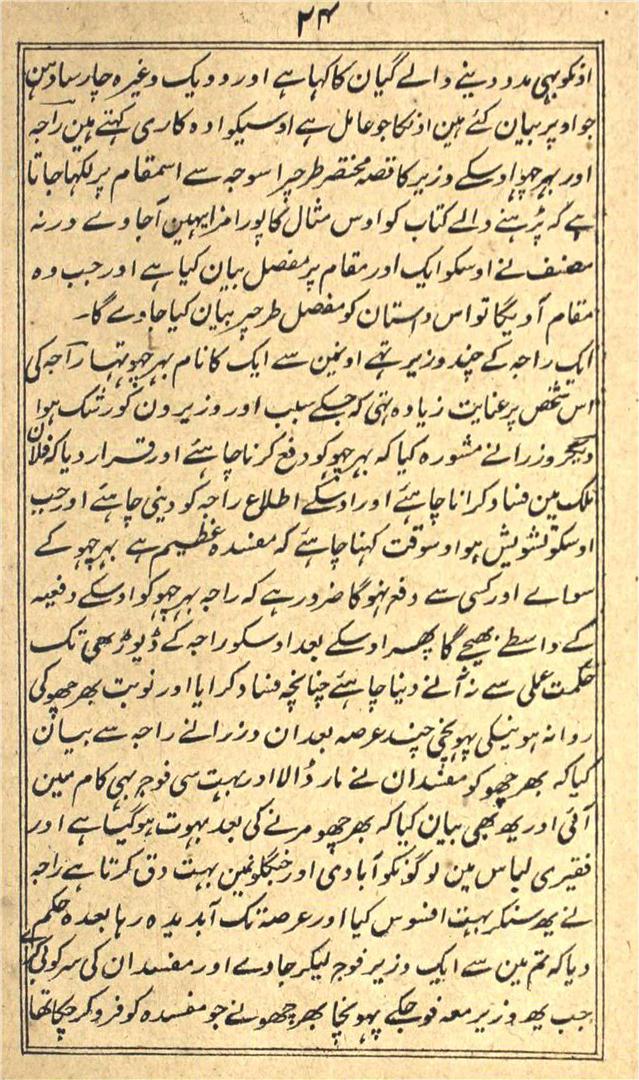 ۲۴
اونکو بہی مدد دینے والے گیان کا کہا ہے اور وویک وغیرہ چار سادہن
جو اوپر بیان کئے ہین اونکا جو عامل ہے اوسیکو ادہکاری کہتے ہین راجہ
اور بہرچہو اوسکے وزیر کا قصہ مختصر طرحپر اسوجہ سے اسمقام پر لکہا جاتا
ہے کہ پڑہنے والے کتاب کو اوس مثال کا پورا مزا یہین آجاوے ورنہ
مصنف نے اوسکو ایک اور مقام پر مفصل بیان کیا ہے اور جب وہ
مقام آویگا تو اس داستان کو مفصل طرحپر بیان کیا جاوے گا۔
ایک راجہ کے چند وزیر تہے اونمین سے ایک کا نام بہرچہو تہا راجہ کی
اس شخص پر عنایت زیادہ تہی کہ جسکے سبب اور وزیرون کو رشک ہوا
دیگر وزرا نے مشورہ کیا کہ بہرچہو کو دفع کرنا چاہئے اور قرار دیا کہ فلان
ملک مین فساد کرانا چاہئے اور اوسکے اطلاع راجہ کو دینی چاہئے اور جب
اوسکو تشویش ہو اوسوقت کہنا چاہئے کہ مفسدہ عظیم ہے بہرچہو کے
سواے اور کسی سے دفع نہوگا ضرور ہے کہ راجہ بہرچہو کو اوسکے دفعیہ
کے واسطے بہیجے گا پھر اوسکے بعد اوسکو راجہ کے ڈیوڑھی تک
حکمت عملی سے نہ آنے دینا چاہئے چنانچہ فساد کرایا اور نوبت بھرچھو کی
روانہ ہونیکی پہونچی چند عرصہ بعد ان وزرا نے راجہ سے بیان
کیا کہ بھرچھو کو مفسدان نے مار ڈالا اور بہت سی فوج بہی کام مین
آئی اور یھ بھی بیان کیا کہ بھرچھو مرنے کی بعد بہوت ہوگیا ہے اور
فقیری لباس مین لوگونکو آبادی اور جنگلونمین بہت دق کرتا ہے راجہ
نے یھ سنکر بہت افسوس کیا اور عرصہ تک آبدیدہ رہا بعدہ حکم
دیا کہ تم مین سے ایک وزیر فوج لیکر جاوے اور مفسدان کی سرکوبی کرے
جب یھ وزیر معہ فوج کے پہونچا بھرچھو نے جو مفسدہ کو فرو کر چکا تھا